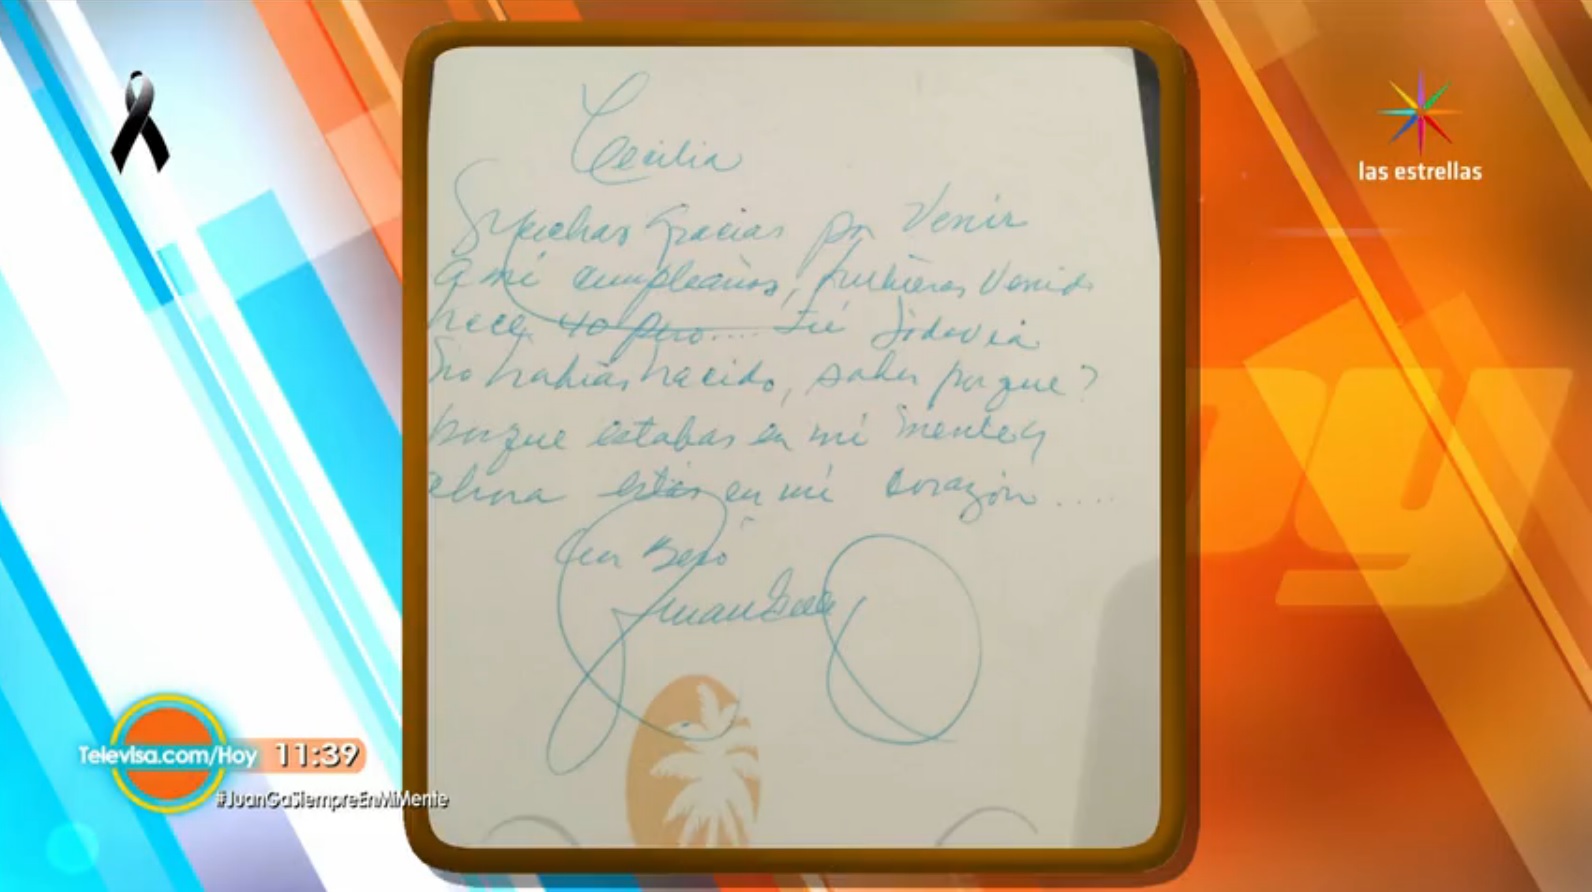 Cecilia
Muchas Gracias por Venir
a mi cumpleaños, hubieras Venido
hace 40 pero.... tú todavía
no habías nacido, sabes porque?
porque estabas en mi mente y
ahora estás en mi corazón ....
Con Beso
Juan Gabriel
las estrellas
oy
Televisa.com/Hoy 11:39
#JuanGaSiempreEnMiMente